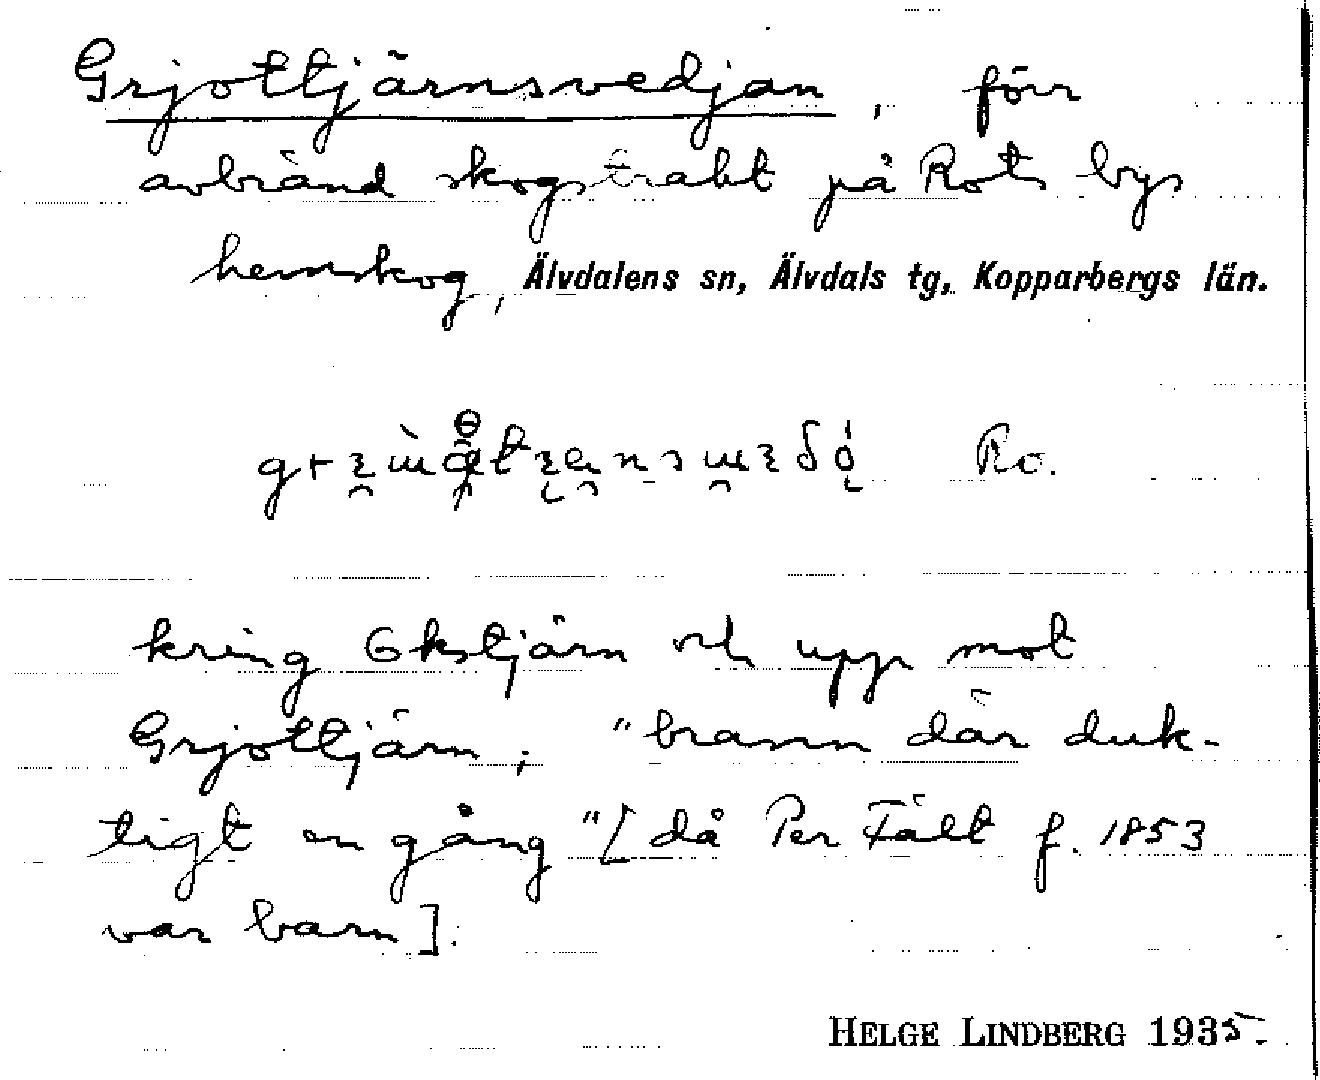 Grjottjärnsvedjan, förr
avbränd skogstrakt på Rots bys
hemskog, Älvdalens sn, Älvdals tg, Kopparbergs län.
Ro.
kring Gkstjärn och upp mot
Grjottjärn; "brann där duk-
tigt en gång" [då Per Fält f. 1853
var barn].
HELGE LINDBERG 1935.